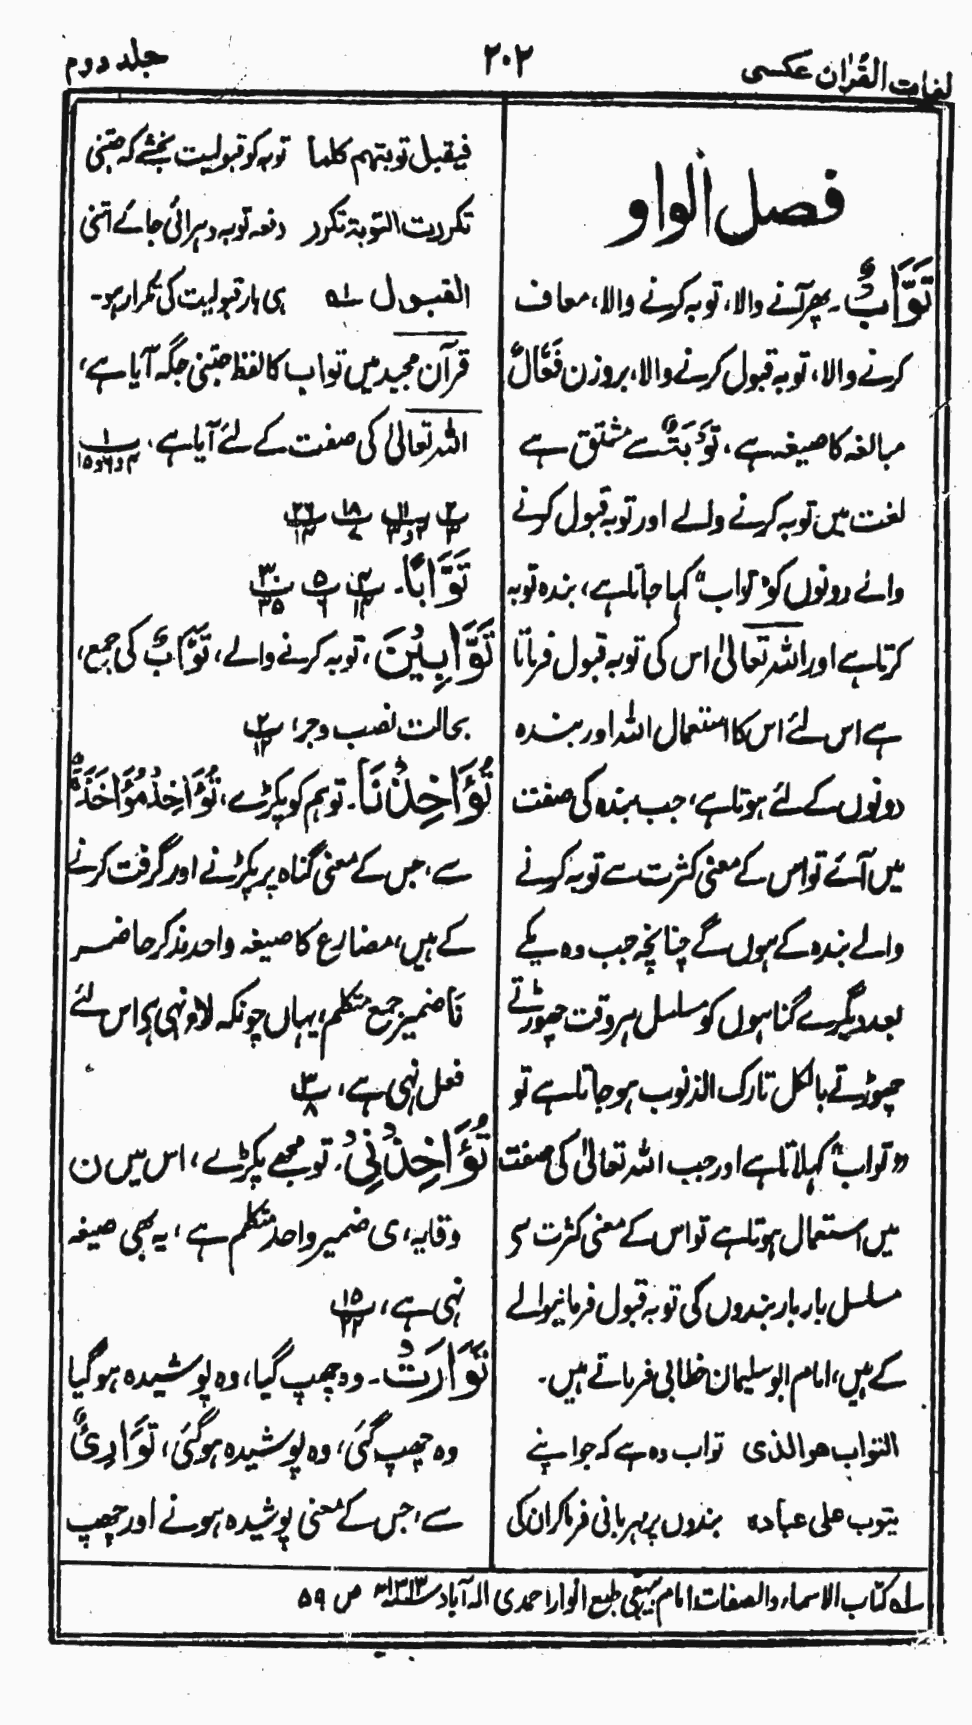 لغات القرآن عکسی
۲۰۲
جلد دوم
فصل الواو
تَوَّابٌ۔ پھر آنے والا، توبہ کرنے والا، معاف
کرنے والا، توبہ قبول کرنے والا، بروزن فَعَّالٌ
مبالغہ کا صیغہ ہے، تَوْبَةٌ سے مشتق ہے
لغت میں توبہ کرنے والے اور توبہ قبول کرنے
والے دونوں کو "تواب" کہا جاتا ہے، بندہ توبہ
کرتا ہے اور اللہ تعالیٰ اس کی توبہ قبول فرماتا
ہے اس لئے اس کا استعمال اللہ اور بندہ
دونوں کے لئے ہوتا ہے، جب بندہ کی صفت
میں آئے تو اس کے معنی کثرت سے توبہ کرنے
والے بندہ کے ہوں گے چنانچہ جب وہ یکے
بعد دیگرے گناہوں کو مسلسل ہر وقت چھوڑتے
چھوڑتے بالکل تارک الذنوب ہو جاتا ہے تو
"تواب" کہلاتا ہے اور جب اللہ تعالیٰ کی صفت
میں استعمال ہوتا ہے تو اس کے معنی کثرت سے
مسلسل بار بار بندوں کی توبہ قبول فرمانیوالے
کے ہیں، امام ابو سلیمان خطابی فرماتے ہیں۔
التواب هو الذی تواب وہ ہے کہ جو اپنے
یتوب علی عباده بندوں پر مہربانی فرما کر ان کی
فیقبل توبتهم کلما توبہ کو قبولیت بخشے کہ جتنی
تکررت التوبة تکرر دفعہ توبہ دہرائی جائے اتنی
القبول لہ ہی بار قبولیت کی تکرار ہو۔
قرآن مجید میں تواب کا لفظ جتنی جگہ آیا ہے،
اللہ تعالیٰ کی صفت کے لئے آیا ہے، پ۱ ۴ و ۶ و ۱۵
پ۲ ۳ پ۱۱ ۲ و ۳ پ۱۸ ۷ پ۲۶ ۱۴
تَوَّابًا۔ پ۴ ۱۴ پ۵ ۶ پ۳۰ ۳۵
تَوَّابِيْنَ، توبہ کرنے والے، تَوَّابٌ کی جمع،
بحالت نصب و جر، پ۲ ۱۲
تُؤَاخِذْنَا۔ تو ہم کو پکڑے، تُؤَاخِذْ مُؤَاخَذَةٌ
سے، جس کے معنی گناہ پر پکڑنے اور گرفت کرنے
کے ہیں، مضارع کا صیغہ واحد مذکر حاضر
نَا ضمیر جمع متکلم، یہاں چونکہ لاء نہی ہے اس لئے
فعل نہی ہے، پ۳ ۸
تُؤَاخِذْنِيْ۔ تو مجھے پکڑے، اس میں ن
وقایہ، ی ضمیر واحد متکلم ہے، یہ بھی صیغہ
نہی ہے، پ۱۵ ۲۲
تَوَارَتْ۔ وہ چھپ گیا، وہ پوشیدہ ہو گیا
وہ چھپ گئی، وہ پوشیدہ ہو گئی، تَوَارِیٌ
سے، جس کے معنی پوشیدہ ہونے اور چھپ
لہ کتاب الاسماء والصفات امام بیہقی طبع انوار احمدی الہ آباد ۱۳۱۳ھ ص ۵۹